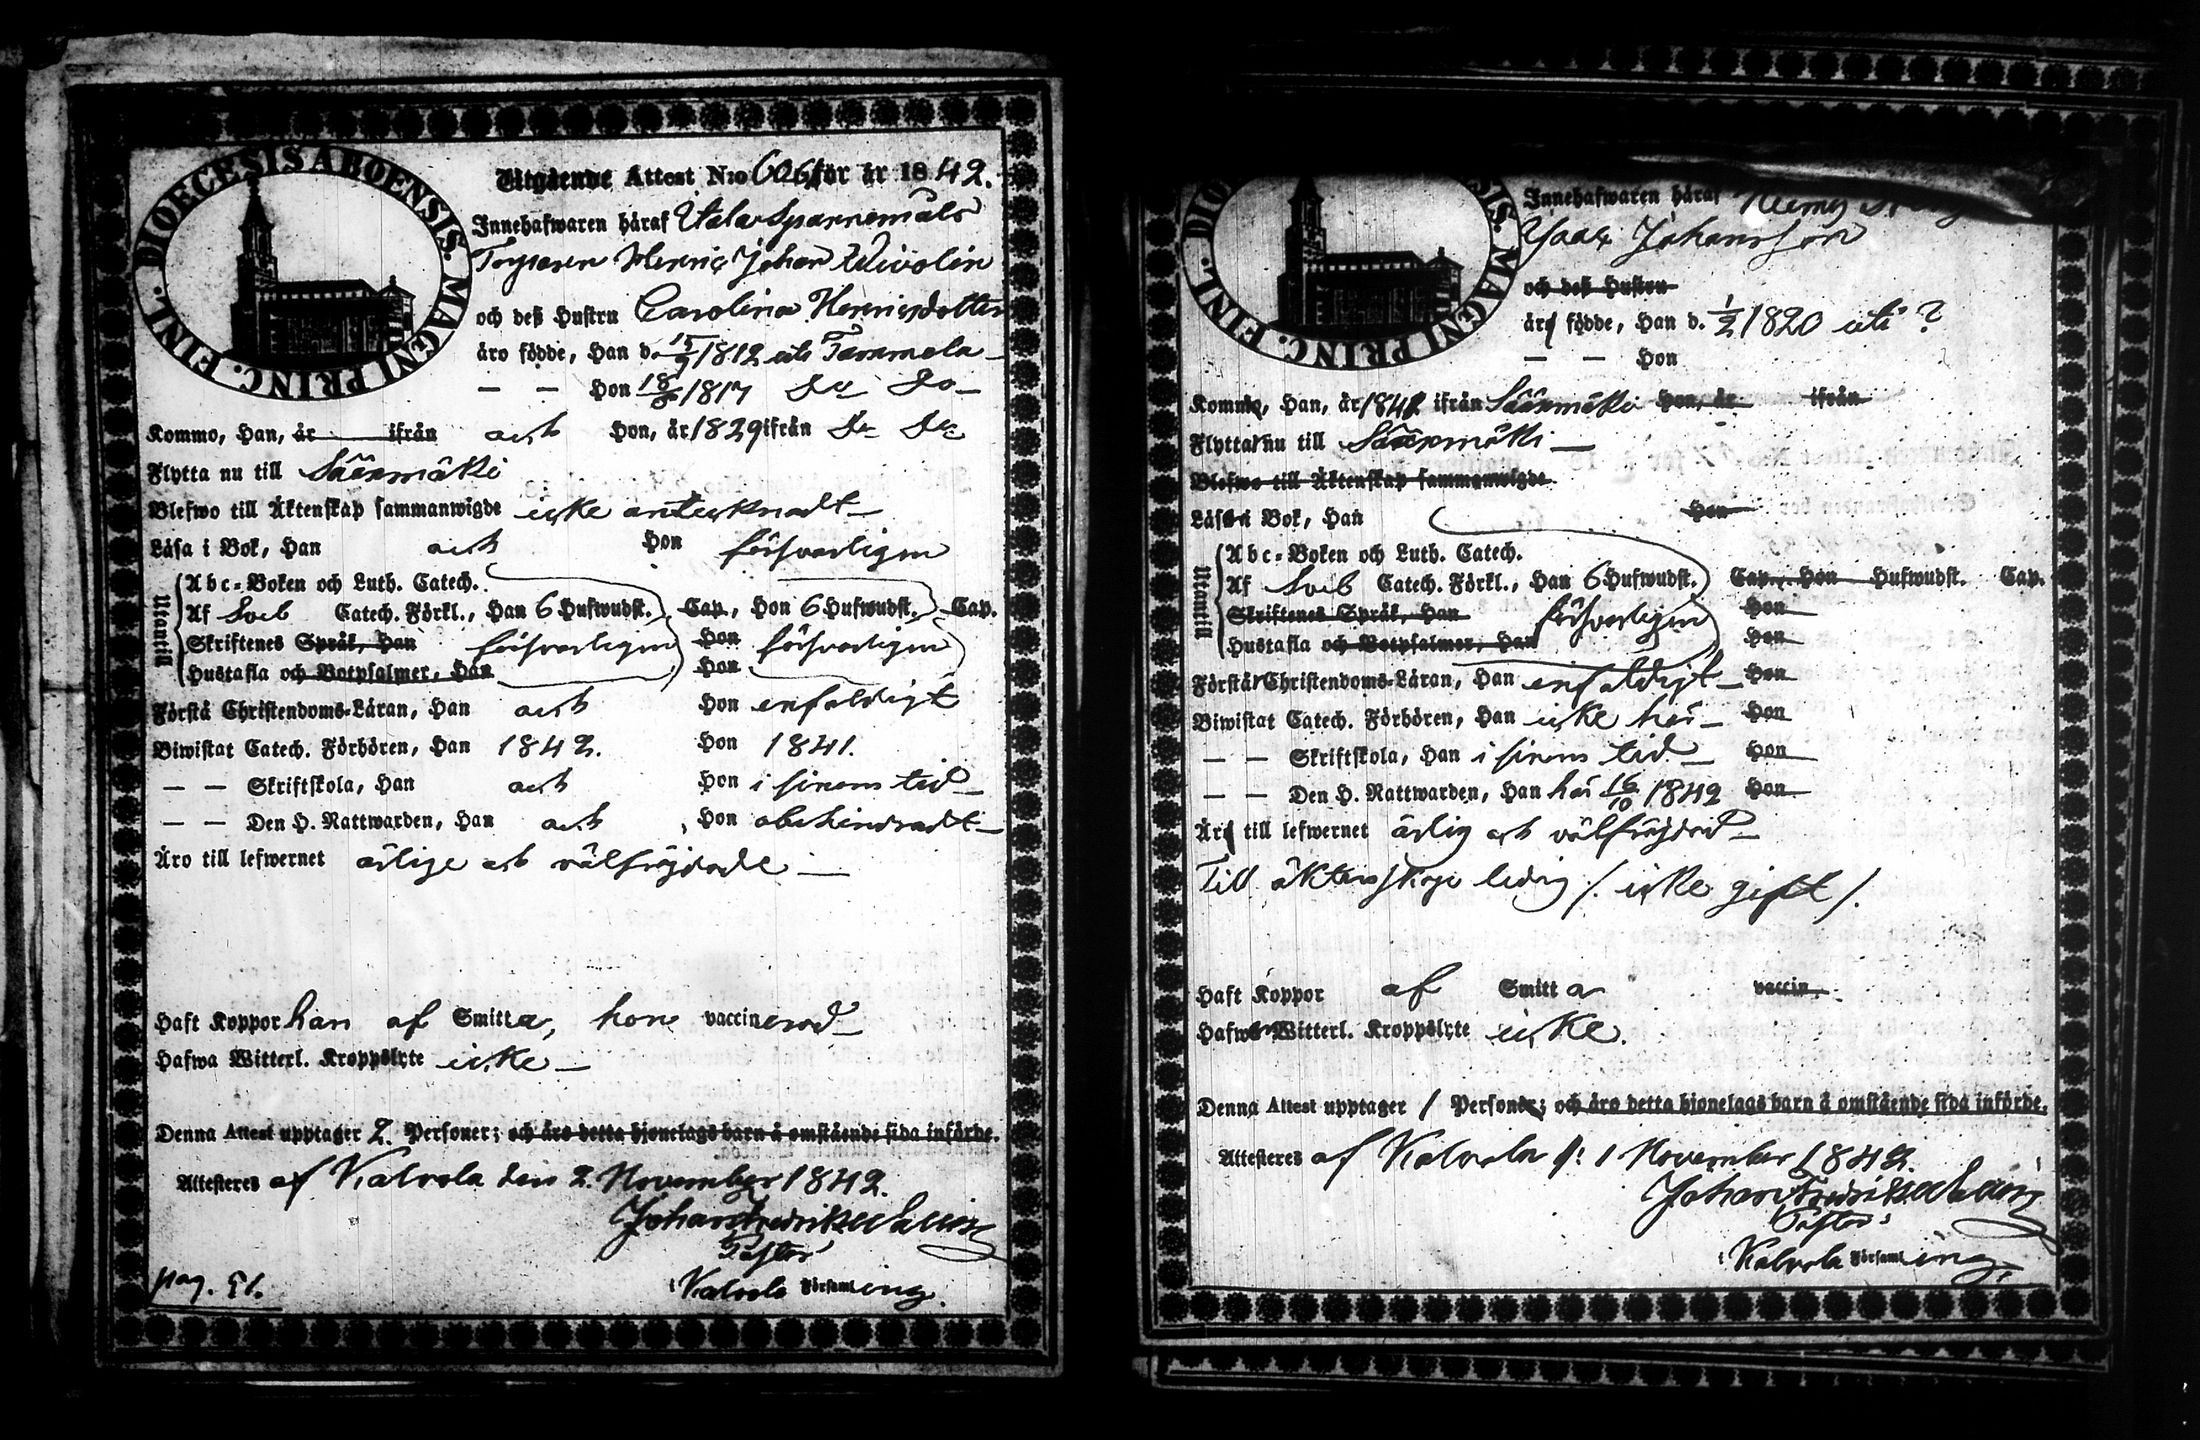 DIOECESIS ABOENSIS. MAGNI PRINC. FINL.
Utgående Attest N:o för år 1842.
Innehafwaren häraf
Henric Johan
och deß Hustru Carolina Henricsdotter
äro födde, Han d. 15/9 1812 uti Tammela
— — Hon 1817 do do
Kommo, Han, år ifrån och Hon, år 1829 ifrån do do
Flytta nu till Sääxmäki
Blefwo till Äktenskap sammanwigde icke antecknadt
Läsa i Bok, Han och Hon försvarligen
Utantill
Abc-Boken och Luth. Catech.
Af Sveb Catech. Förkl., Han 6 Hufwudst. Cap., Hon 6 Hufwudst. Cap.
Skriftenes Språk, Han försvarligen Hon försvarligen
Hustafla och Botpsalmer, Han Hon
Förstå Christendoms-Läran, Han och Hon enfaldigt
Biwistat Catech. Förhören, Han 1842. Hon 1841.
— — Skriftskola, Han och Hon i sinom tid
— — Den H. Nattwarden, Han och Hon obehindradt
Äro till lefwernet ärlige och välfrejdade
Haft Koppor han af Smitta, hon vaccinerad
Hafwa Witterl. Kroppslyte icke
Denna Attest upptager 2. Personer; och äro detta hjonelags barn å omstående sida införde.
Attesteres af Kalvola den 2. November 1842.
Johan Fredrik
Pastor
Kalvola Församling.
pag. 51.
Innehafwaren häraf
Isaac Johansson
och deß Hustru
äro födde, Han d. 1/2 1820 uti ?
— — Hon
Kommo, Han, år 1841 ifrån Sääxmäki Hon, år ifrån
Flytta nu till Sääxmäki
Blefwo till Äktenskap sammanwigde
Läsa i Bok, Han Hon
Utantill
Abc-Boken och Luth. Catech.
Af Sveb Catech. Förkl., Han 6 Hufwudst. Cap., Hon Hufwudst. Cap.
Skriftenes Språk, Han försvarligen Hon
Hustafla och Botpsalmer, Han Hon
Förstå Christendoms-Läran, Han enfaldigt Hon
Biwistat Catech. Förhören, Han icke här Hon
— — Skriftskola, Han i sinom tid Hon
— — Den H. Nattwarden, Han här 16/10 1842 Hon
Äro till lefwernet ärlig och välfrejdad
Till äktenskap ledig /. icke gift /.
Haft Koppor af Smitta vaccin.
Hafwa Witterl. Kroppslyte icke.
Denna Attest upptager 1 Personer; och äro detta hjonelags barn å omstående sida införde.
Attesteres af Kalvola d: 1 November 1842.
Johan Fredrik
Pastor
Kalvola Församling.